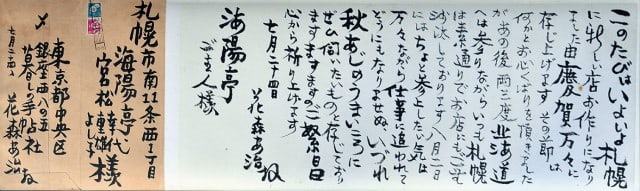 このたびはいよいよ札幌
に新しい店お作りになり
ました由慶賀万々に
存じ上げます その節は
何かとお心くばりを頂きました
があの後両三度北海道
へは参りながらいつも札幌
は素通りでお店にもご無
沙汰しております 八月二日
にはちょと参上したい気は
万々ながら仕事に追われて
どうにもなりませぬ、いづれ
秋あじのうまいころに
ぜひ伺いたいものと存じており
ますますますのご繁昌
心から祈り上げます
七月二十四 花森安治 拝
海陽亭
ご主人様
札幌市南11条西1丁目
海陽亭
宮松幸代 様
よし子
〆 東京都中央区
銀座西八の五
暮しの手帖社
七月二十四 花森安治